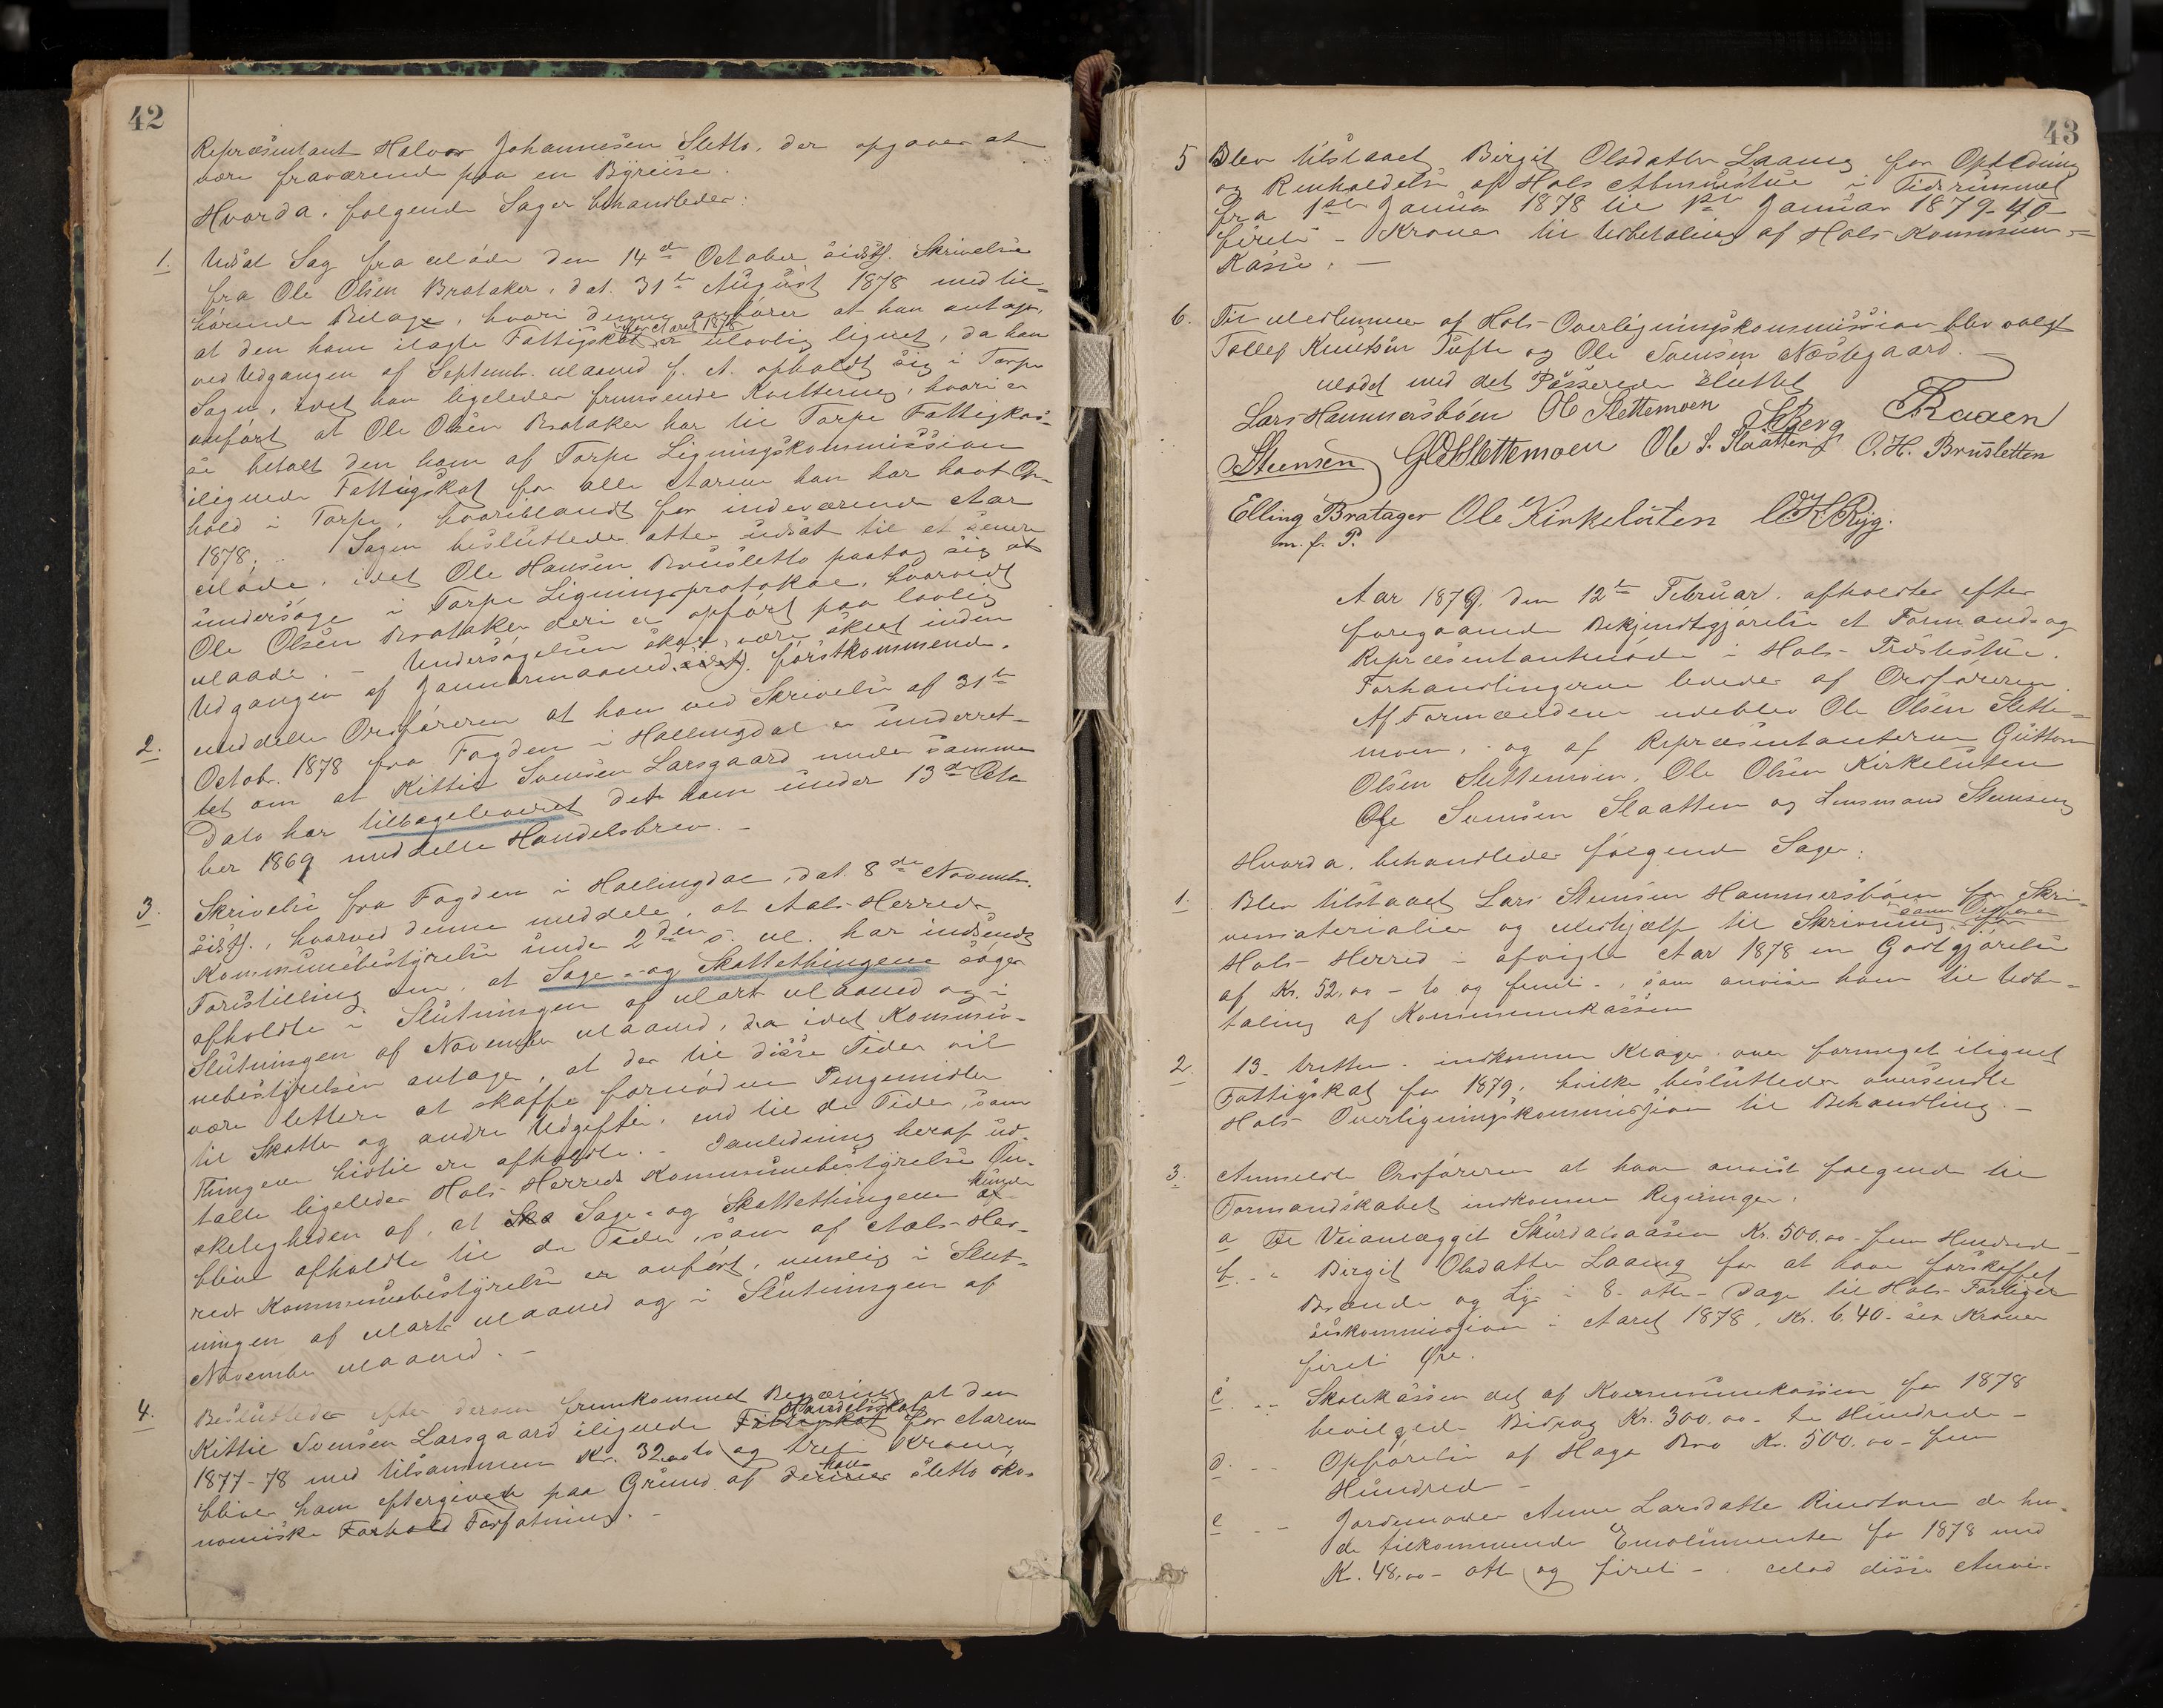 42
Repræsentant Halvor Johannesen Sletto, der opgaves at
være fraværende paa en Byreise.
Hvorda følgende Sager behandledes:
1. Udsat Sag fra Møde den 14de October sidstl. Skrivelse
fra Ole Olsen Brataker, dat. 31te August 1878 med til-
hørende Bilage, hvori denne anfører at han antager,
at den ham ilagte Fattigskat for Aaret 1878 er ulovlig lignet, da han
ved Udgangen af Septembr. Maaned f. A. opholdt sig i Torpe
Sogn, idet han ligeledes fremsendte Kvittering, hvori er
anført at Ole Olsen Brataker har til Torpe Fattigkas-
se betalt den ham af Torpe Ligningskommission
ilignede Fattigskat for alle Aarene han har havt Op-
hold i Torpe, hvoriblandt for indeværende Aar
1878. Sagen besluttedes atter udsat til et senere
Møde, idet Ole Hansen Brusletto paatog sig at
undersøge i Torpe Ligningsprotokol, hvorvidt
Ole Olsen Brataker deri er opført paa lovlig
Maade. - Undersøgelsen skal være skeet inden
Udgangen af Januarmaaned sidstl. førstkommende.
2. meddelte Ordføreren at han ved Skrivelse af 31te
Octob. 1878 fra Fogden i Hallingdal er underret-
tet om at Kittil Svensen Larsgaard under samme
Dato har tilbageleveret det ham under 13de Octo
ber 1869 meddelte Handelsbrev. -
3. Skrivelse fra Fogden i Hallingdal, dat. 8de Novembr.
sidstl., hvorved denne meddele, at Aals Herreds
Kommunebestyrelse under 2den s. M. har indsendt
Forestilling om, at Sage- og Skattethingene søges
afholdte i Slutningen af Marts Maaned og i
Slutningen af November Maaned, da idet Kommu-
nebestyrelsen antager, at der til disse Tider vil
være lettere at skaffe fornødne Pengemidler
til Skatter og andre Udgifter, end til de Tider, som
Thingene hidtil ere afholdte. - I anledning heraf ud-
talte ligeledes Hols Herreds Kommunebestyrelse Øn-
skeligheden af, at Ska Sage- og Skattethingene kunde at
blive afholdte til de Tider, som af Aals Her-
reds Kommunebestyrelse er anført, nemlig i Slut-
ningen af Marts Maaned og i Slutningen af
November Maaned. -
4. Besluttedes efter derom fremkommet Begæring at den
Kittil Svensen Larsgaard ilignede Fattigskat Handelsskat for Aarene
1877-78 med tilsammen Kr. 32.00 to og treti Kroner
bliver ham eftergivet paa Grund af dennes hans sletto øko-
nomiske Forhold Forfatning. -
43
5 Blev tilstaaet Birgit Olsdatter Laaug for Opledning
og Renholdelse af Hols Almuestue i Tidsrummet
fra 1ste Januar 1878 til 1ste Januar 1879 - 40 -
fireti - Kroner til Udbetaling af Hols Kommune-
Kasse. -
6. Til Medlemmer af Hols Overligningskommission blev valgt
Tollef Knutsen Tufte og Ole Svensen Næstegaard. -
Mødet med det Passerede sluttet
Lars Hammersbøen Ol Slettemoen SBerg TRaaen
SSteensen GOSlettemoen Ole S. Slaatten O. H. Brusletten
Elling Bratager Ole Kirkeluten OKRyg.
m. f. P.
Aar 1879, den 12te Februar, afholdtes efter
foregaaende Bekjendtgjørelse et Formands og
Repræsentantmøde i Hols Præstestue.
Forhandlingerne lededes af Ordføreren.
Af Formændene udeblev Ole Olsen Slette-
moen, og af Repræsentanterne Guttorm
Olsen Slettemoen, Ole Olsen Kirkeluten
Ole Svensen Slaatten og Lensmand Steensen
Hvorda behandledes følgende Sager:
1. Blev tilstaaet Lars Steensen Hammersbøen for Skri-
vematerialier og Medhjælp til Skrivning som Ordfører for
Hols Herred i afvigte Aar 1878 en Godtgjørelse
af Kr. 52.00 - to og femti -, som anvises ham til Udbe-
taling af Kommunekassen
2. 13 - tretten - indkomne Klager over formeget ilignet
Fattigskat for 1879, hvilke besluttedes oversendte
Hols Overligningskommission til Behandling. -
3. Anmeldte Ordføreren at have anvist følgende til
Formandskabet indkomne Regninger.
a Til Veianlægget Skurdalsaasen Kr. 500.00 - fem Hundrede -
b. - " Birgit Olsdatter Laaug for at have forskaffet
Brænde og Lys i 8 - otte - Dage til Hols Forligel
seskommission i Aaret 1878, Kr. 6.40 - sex Kroner
fireti Øre.
c. - - Skolekassen det af Kommunekassen for 1878
bevilgede Bidrag Kr. 300.00 - tre Hundrede -
d. - - Opførelse af Haga Bro Kr. 500.00 - fem
Hundrede -
e - - Jordemoder Anne Larsdatter Rustom de hen-
de tilkommende Emolumenter for 1878 med
K. 48.00 - otte og fireti - . Mod disse Anvi-